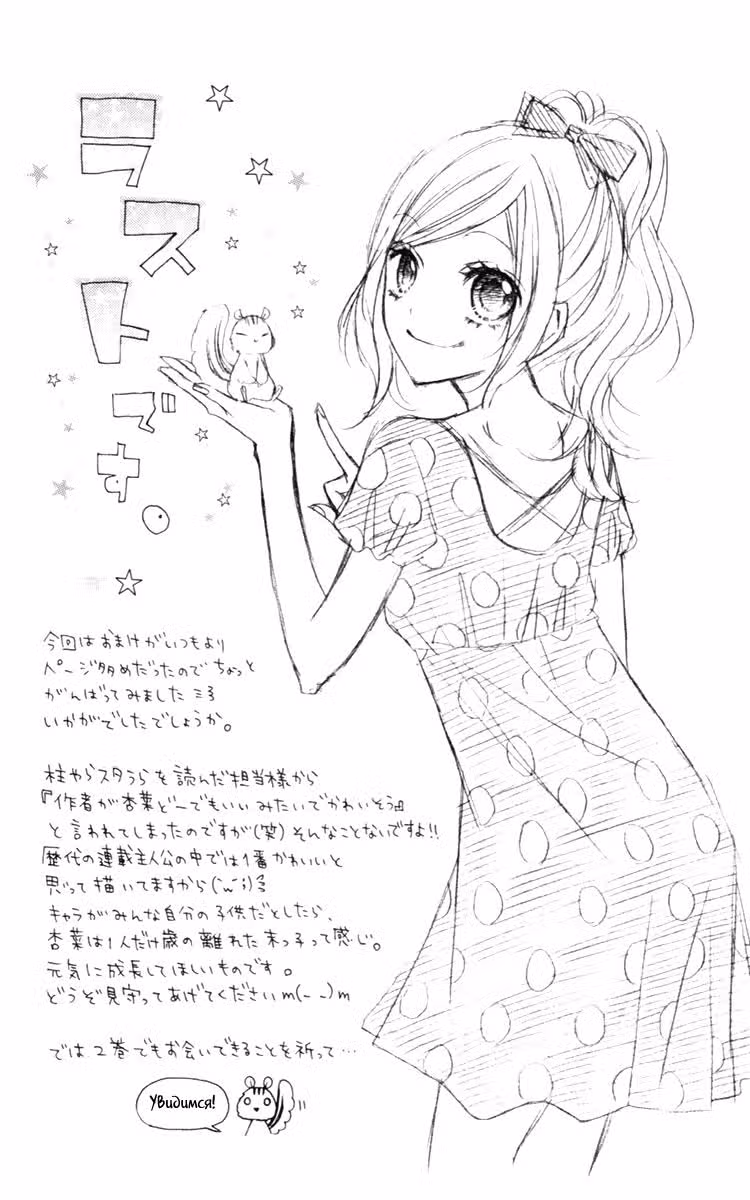 ラストです。
今回はおまけがいつもより
ページ多めだったので ちょっと
がんばってみました
いかがでしたでしょうか。
柱やらスタうらを読んだ担当様から
『作者が杏菜どーでもいいみたいでかわいそう』
と言われてしまったのですが(笑) そんなことないですよ!!
歴代の連載主人公の中では1番かわいいと
思って描いてますから
キャラがみんな自分の子供だとしたら、
杏菜は1人だけ歳の離れた末っ子って感じ。
元気に成長してほしいものです。
どうぞ見守ってあげてくださいm(- -)m
では2巻でもお会いできることを祈って…
Увидимся!